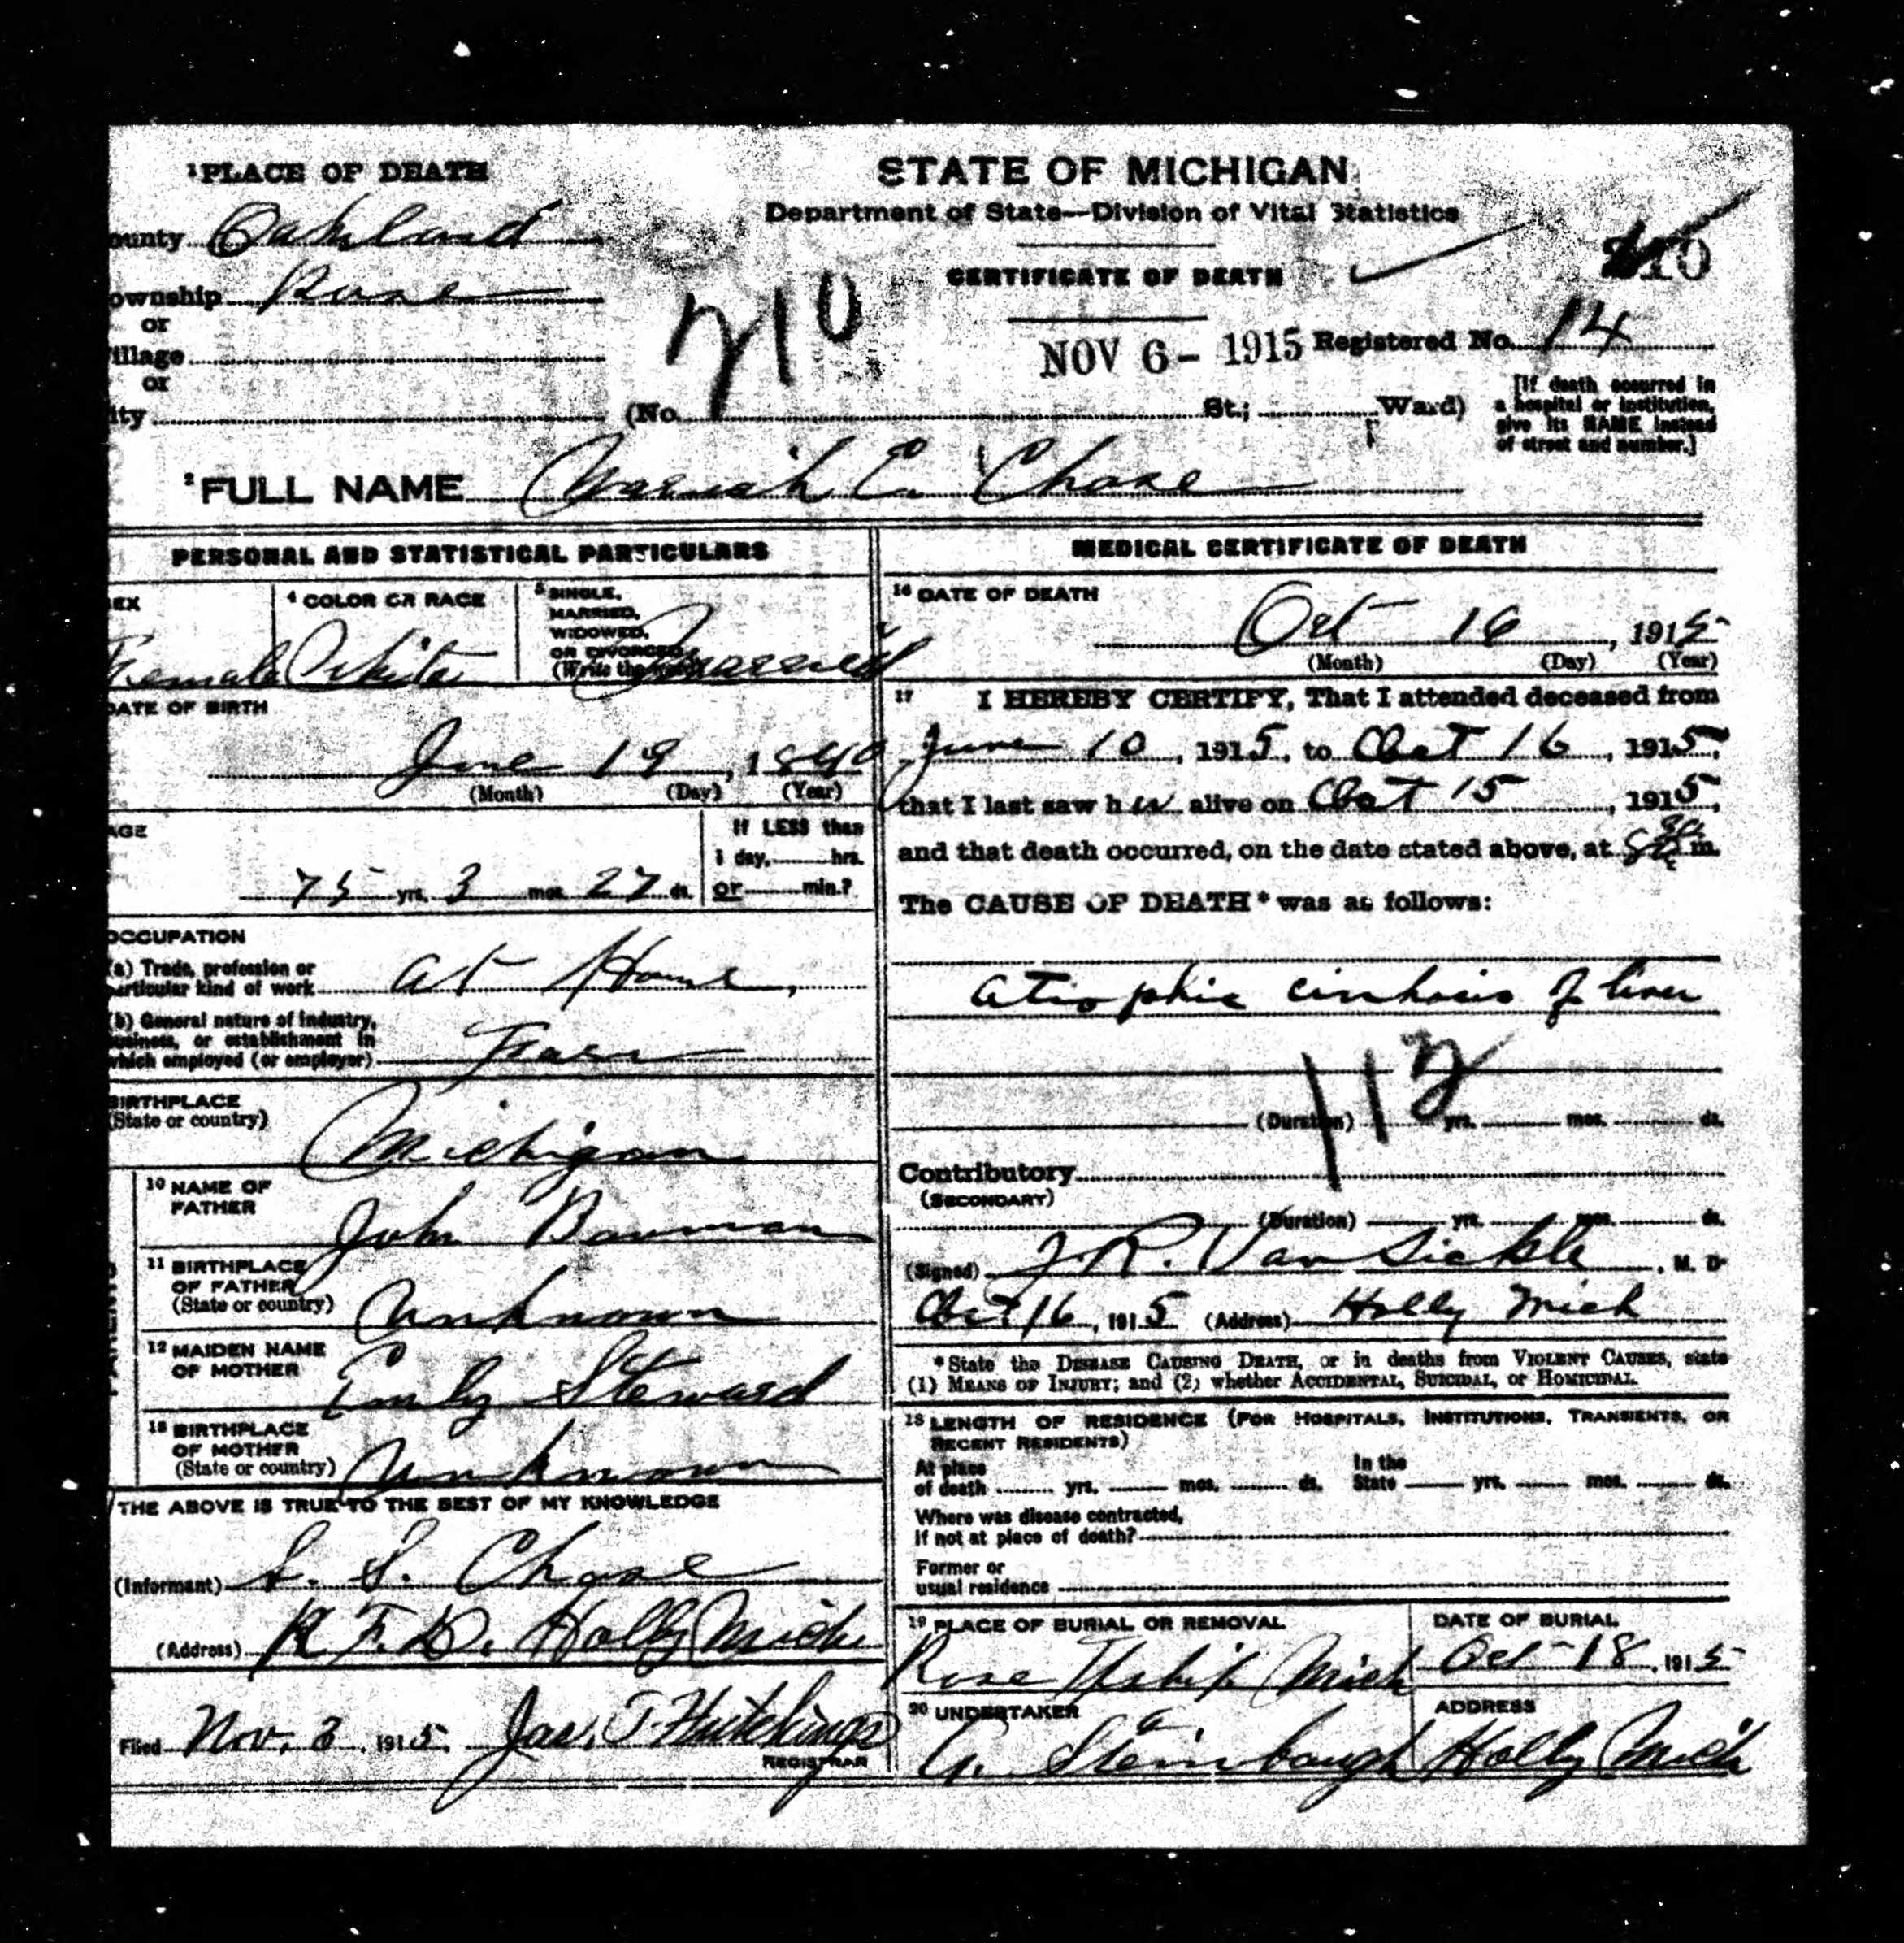 ¹PLACE OF DEATH
ounty Oakland
ownship Rose
or
illage
or
ity
STATE OF MICHIGAN
Department of State—Division of Vital Statistics
CERTIFICATE OF DEATH
210
NOV 6- 1915 Registered No. 14
(No. St.; Ward)
[If death occurred in
a hospital or institution,
give its NAME instead
of street and number.]
² FULL NAME Mariah E. Chase
PERSONAL AND STATISTICAL PARTICULARS
EX
Female
⁴ COLOR OR RACE
White
⁵ SINGLE,
MARRIED,
WIDOWED,
OR DIVORCED
(Write the
Married
DATE OF BIRTH
June 19, 1840
(Month) (Day) (Year)
AGE
75 yrs. 3 mos. 27 ds.
If LESS than
1 day, hrs.
or min.?
OCCUPATION
(a) Trade, profession or
particular kind of work At Home,
(b) General nature of industry,
business, or establishment in
which employed (or employer) Farm
BIRTHPLACE
(State or country)
Michigan
10 NAME OF
FATHER
John Bowman
11 BIRTHPLACE
OF FATHER
(State or country)
Unknown
12 MAIDEN NAME
OF MOTHER
Emily Steward
13 BIRTHPLACE
OF MOTHER
(State or country)
Unknown
PARENTS
THE ABOVE IS TRUE TO THE BEST OF MY KNOWLEDGE
(Informant) S. S. Chase
(Address) R.F.D. Holly Mich
Filed Nov. 3, 1915. Jas. T Hutchings
REGISTRAR
MEDICAL CERTIFICATE OF DEATH
16 DATE OF DEATH
Oct 16, 1915
(Month) (Day) (Year)
17 I HEREBY CERTIFY, That I attended deceased from
June 10, 1915, to Oct 16, 1915,
that I last saw her alive on Oct 15, 1915,
and that death occurred, on the date stated above, at m.
The CAUSE OF DEATH* was as follows:
Atrophic cirrhosis of liver
113
(Duration) yrs. mos. ds.
Contributory
(SECONDARY)
(Duration) yrs. mos. ds.
(Signed) J.R. Van Sickle, M. D.
Oct 16, 1915 (Address) Holly Mich
*State the DISEASE CAUSING DEATH, or in deaths from VIOLENT CAUSES, state
(1) MEANS OF INJURY; and (2) whether ACCIDENTAL, SUICIDAL, or HOMICIDAL.
18 LENGTH OF RESIDENCE (FOR HOSPITALS, INSTITUTIONS, TRANSIENTS, OR
RECENT RESIDENTS)
At place
of death yrs. mos. ds.
In the
State yrs. mos. ds.
Where was disease contracted,
If not at place of death?
Former or
usual residence
19 PLACE OF BURIAL OR REMOVAL
Rose Mich
DATE OF BURIAL
Oct 18, 1915
20 UNDERTAKER
Steinbaugh
ADDRESS
Holly Mich